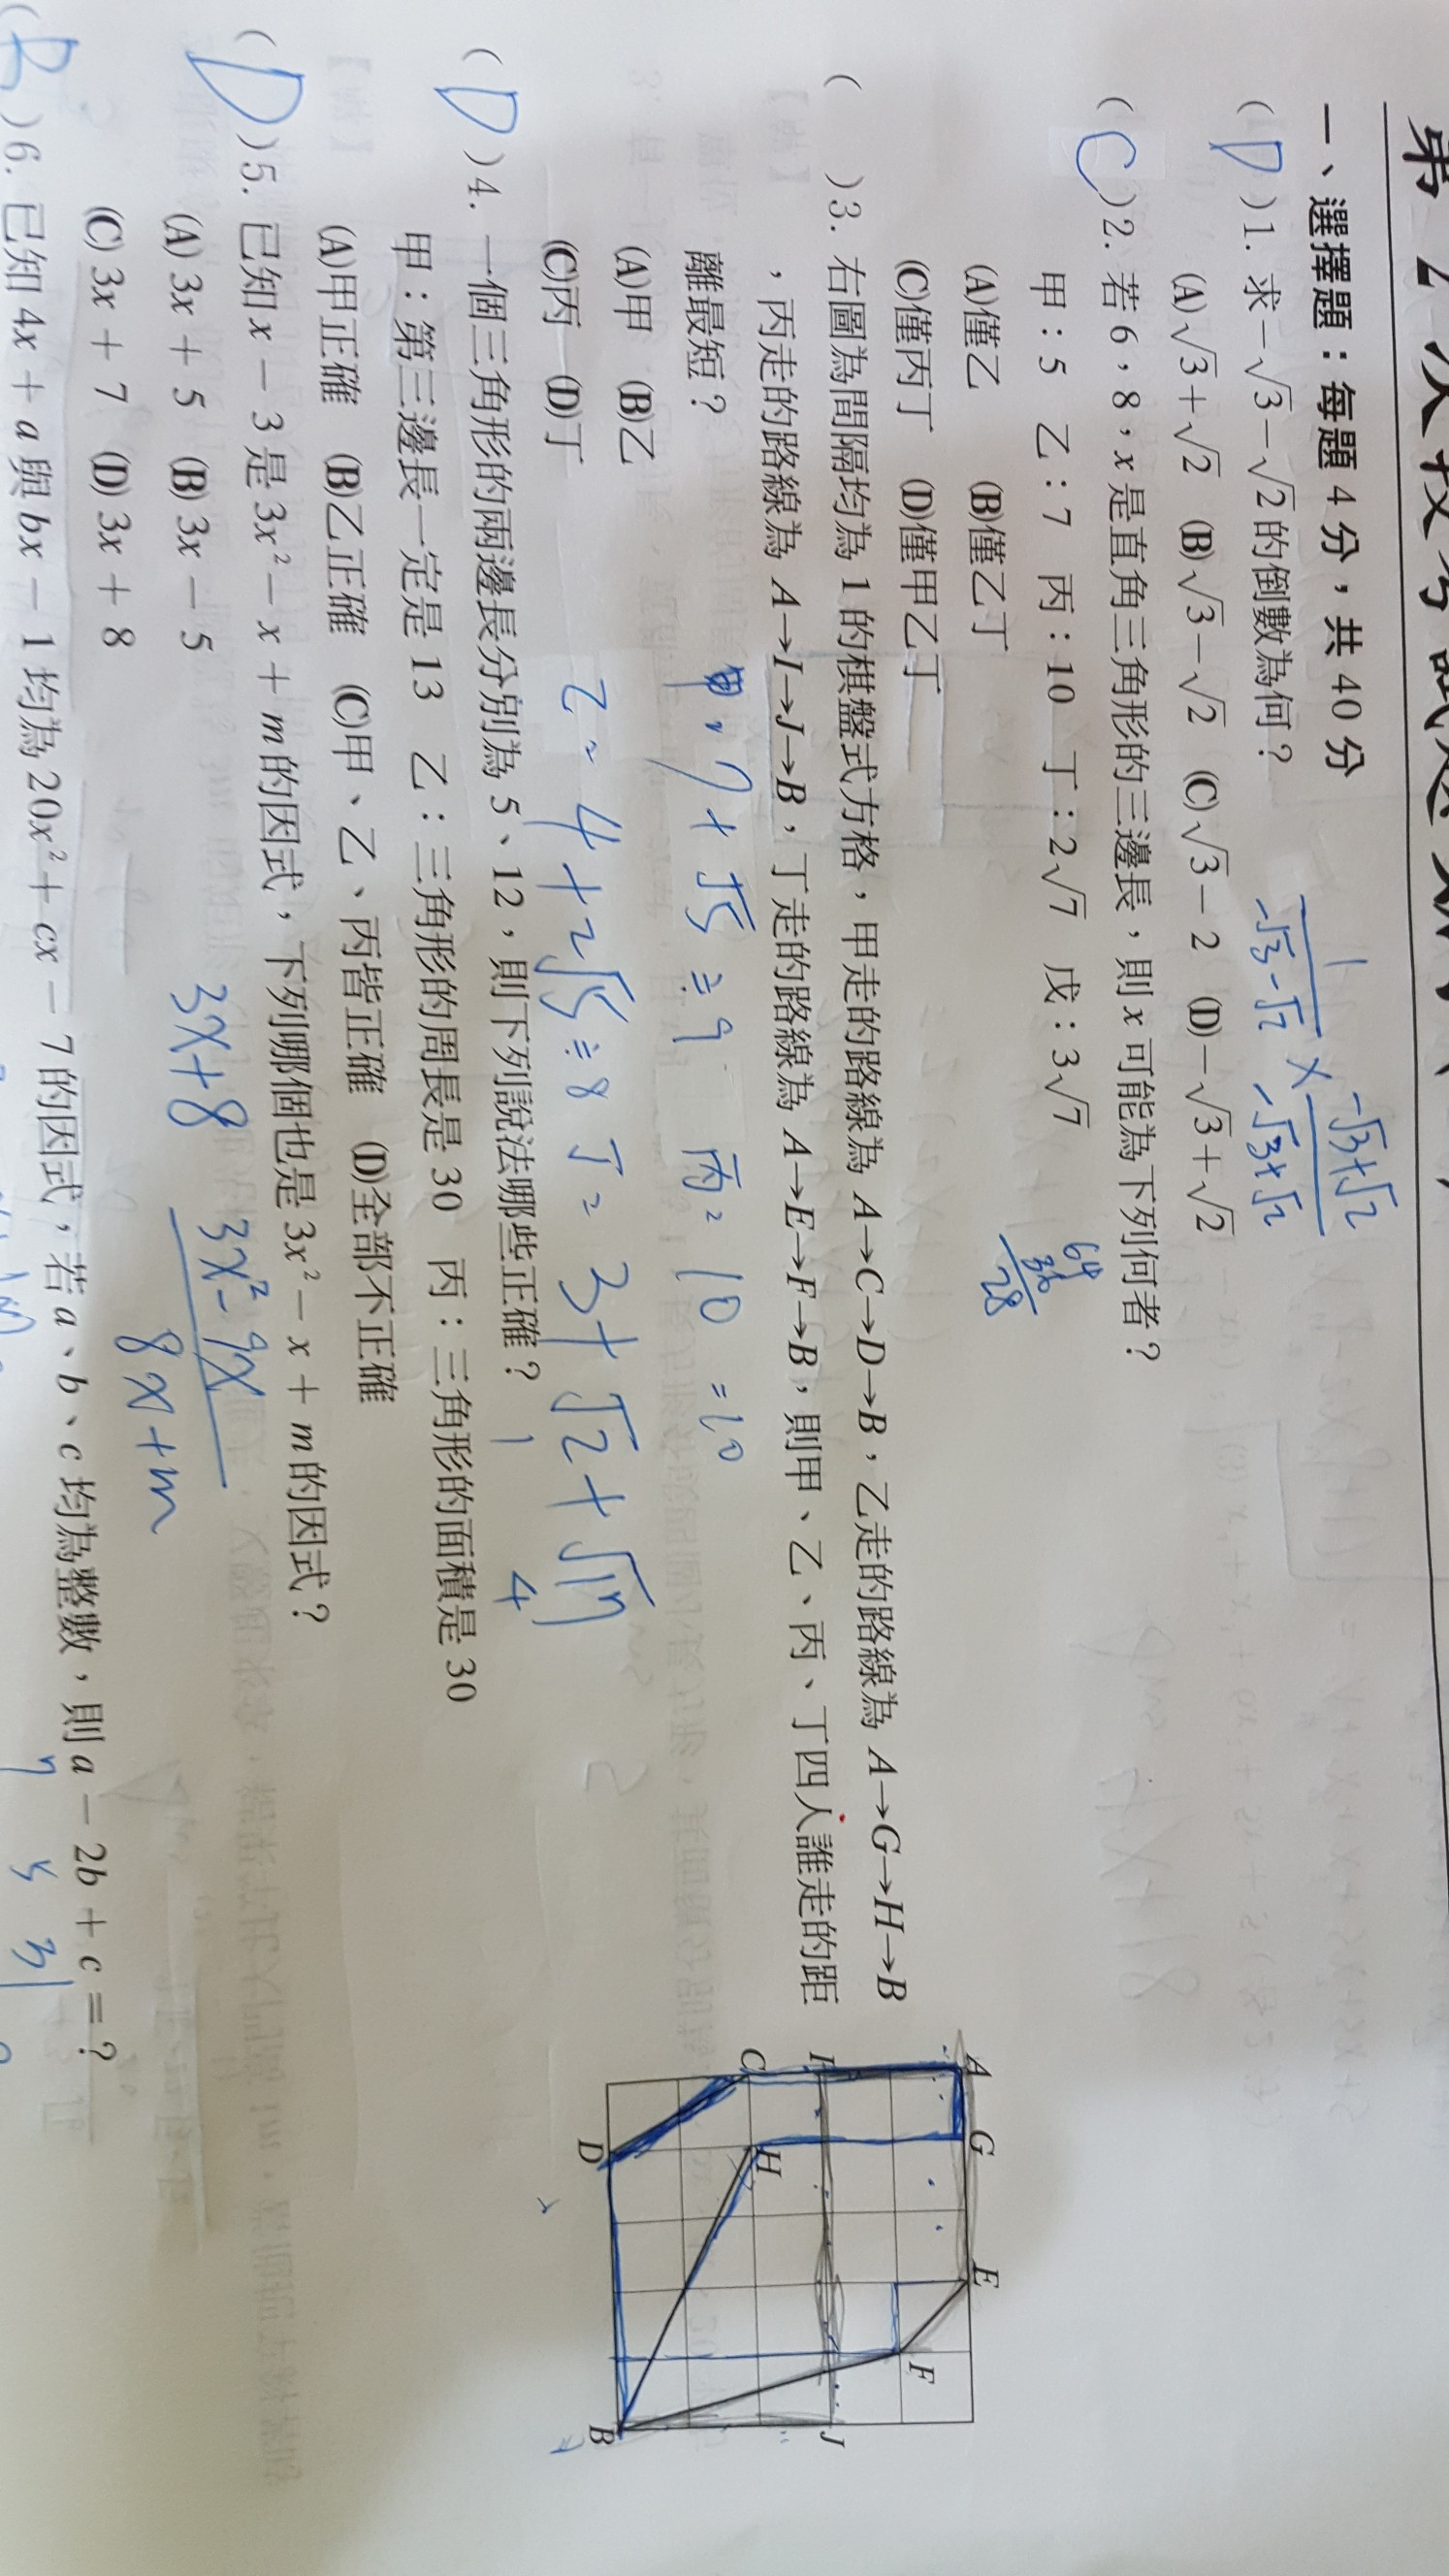 第 2 次段考
一、選擇題：每題 4 分，共 40 分
( D )1. 求 −√3 − √2 的倒數為何？
(A) √3 + √2 (B) √3 − √2 (C) √3 − 2 (D) −√3 + √2
1/(−√3 − √2) × (−√3 + √2)/(−√3 + √2)
( C )2. 若 6，8，x 是直角三角形的三邊長，則 x 可能為下列何者？
甲：5 乙：7 丙：10 丁：2√7 戊：3√7
(A)僅乙 (B)僅乙丁
(C)僅丙丁 (D)僅甲乙丁
64
36
28
( )3. 右圖為間隔均為 1 的棋盤式方格，甲走的路線為 A→C→D→B，乙走的路線為 A→G→H→B
，丙走的路線為 A→I→J→B，丁走的路線為 A→E→F→B，則甲、乙、丙、丁四人誰走的距
離最短？
(A)甲 (B)乙
(C)丙 (D)丁
A G E
F
I J
C H
D B
甲= 7 + √5 ≒ 9 丙= 10 = 10
乙= 4 + 2√5 ≒ 8 丁= 3 + √2 + √17
1 4
( D )4. 一個三角形的兩邊長分別為 5、12，則下列說法哪些正確？
甲：第三邊長一定是 13 乙：三角形的周長是 30 丙：三角形的面積是 30
(A)甲正確 (B)乙正確 (C)甲、乙、丙皆正確 (D)全部不正確
( D )5. 已知 x − 3 是 3x² − x + m 的因式，下列哪個也是 3x² − x + m 的因式？
(A) 3x + 5 (B) 3x − 5
(C) 3x + 7 (D) 3x + 8
3x+8
3x² − 9x
8x + m
( B )6. 已知 4x + a 與 bx − 1 均為 20x² + cx − 7 的因式，若 a、b、c 均為整數，則 a − 2b + c = ？
7 5 31